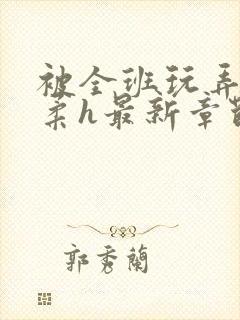 被全班玩弄
柔h最新章
郭秀蘭